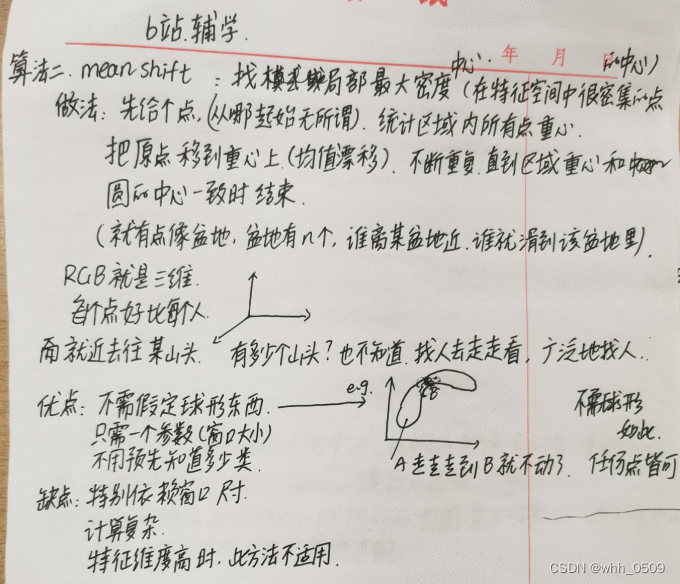 b站.辅学.
年 月 日
算法二. mean shift : 找模式 局部最大密度 (在特征空间中很密集的点
中心. 的中心)
做法: 先给个点, (从哪起始无所谓). 统计区域内所有点重心.
把原点移到重心上 (均值漂移). 不断重复. 直到区域重心和
圆的中心一致时结束.
(就有点像盆地, 盆地有n个, 谁离某盆地近. 谁就滑到该盆地里).
RGB就是三维.
每个点好比每个人.
而就近去往某山头. 有多少个山头? 也不知道. 找人去走走看, 广泛地找人.
优点: 不需假定球形东西. e.g. 不需球形
只需一个参数 (窗口大小) 如此.
不用预先知道多少类. A走走走到B就不动了. 任何点皆可
缺点: 特别依赖窗口尺寸.
计算复杂.
特征维度高时, 此方法不适用.
CSDN @whh_0509